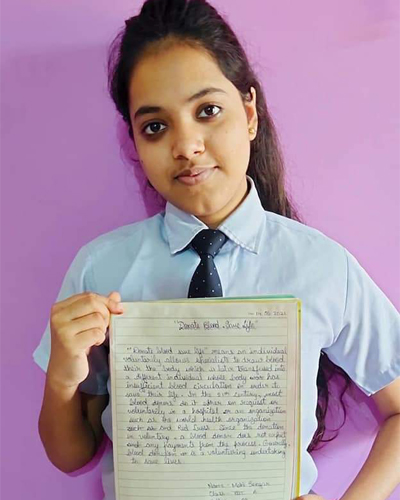 "Donate Blood, Save Life"
"Donate blood save life" means an individual
voluntarily allows specialists to draw blood
their the body which is later transfused into
a different individual whose body now has
insufficient blood circulation in order
save their life. In the century, most
blood donors do it often on request or
voluntarily in a hospital or an organisation
such as the world health organisation
such as and Red Cross. Since the donation
is voluntary, a blood donor does not expect
any payments from the process. Generally,
blood donation is a volunteering undertaking
to save lives.
Name:
Class: